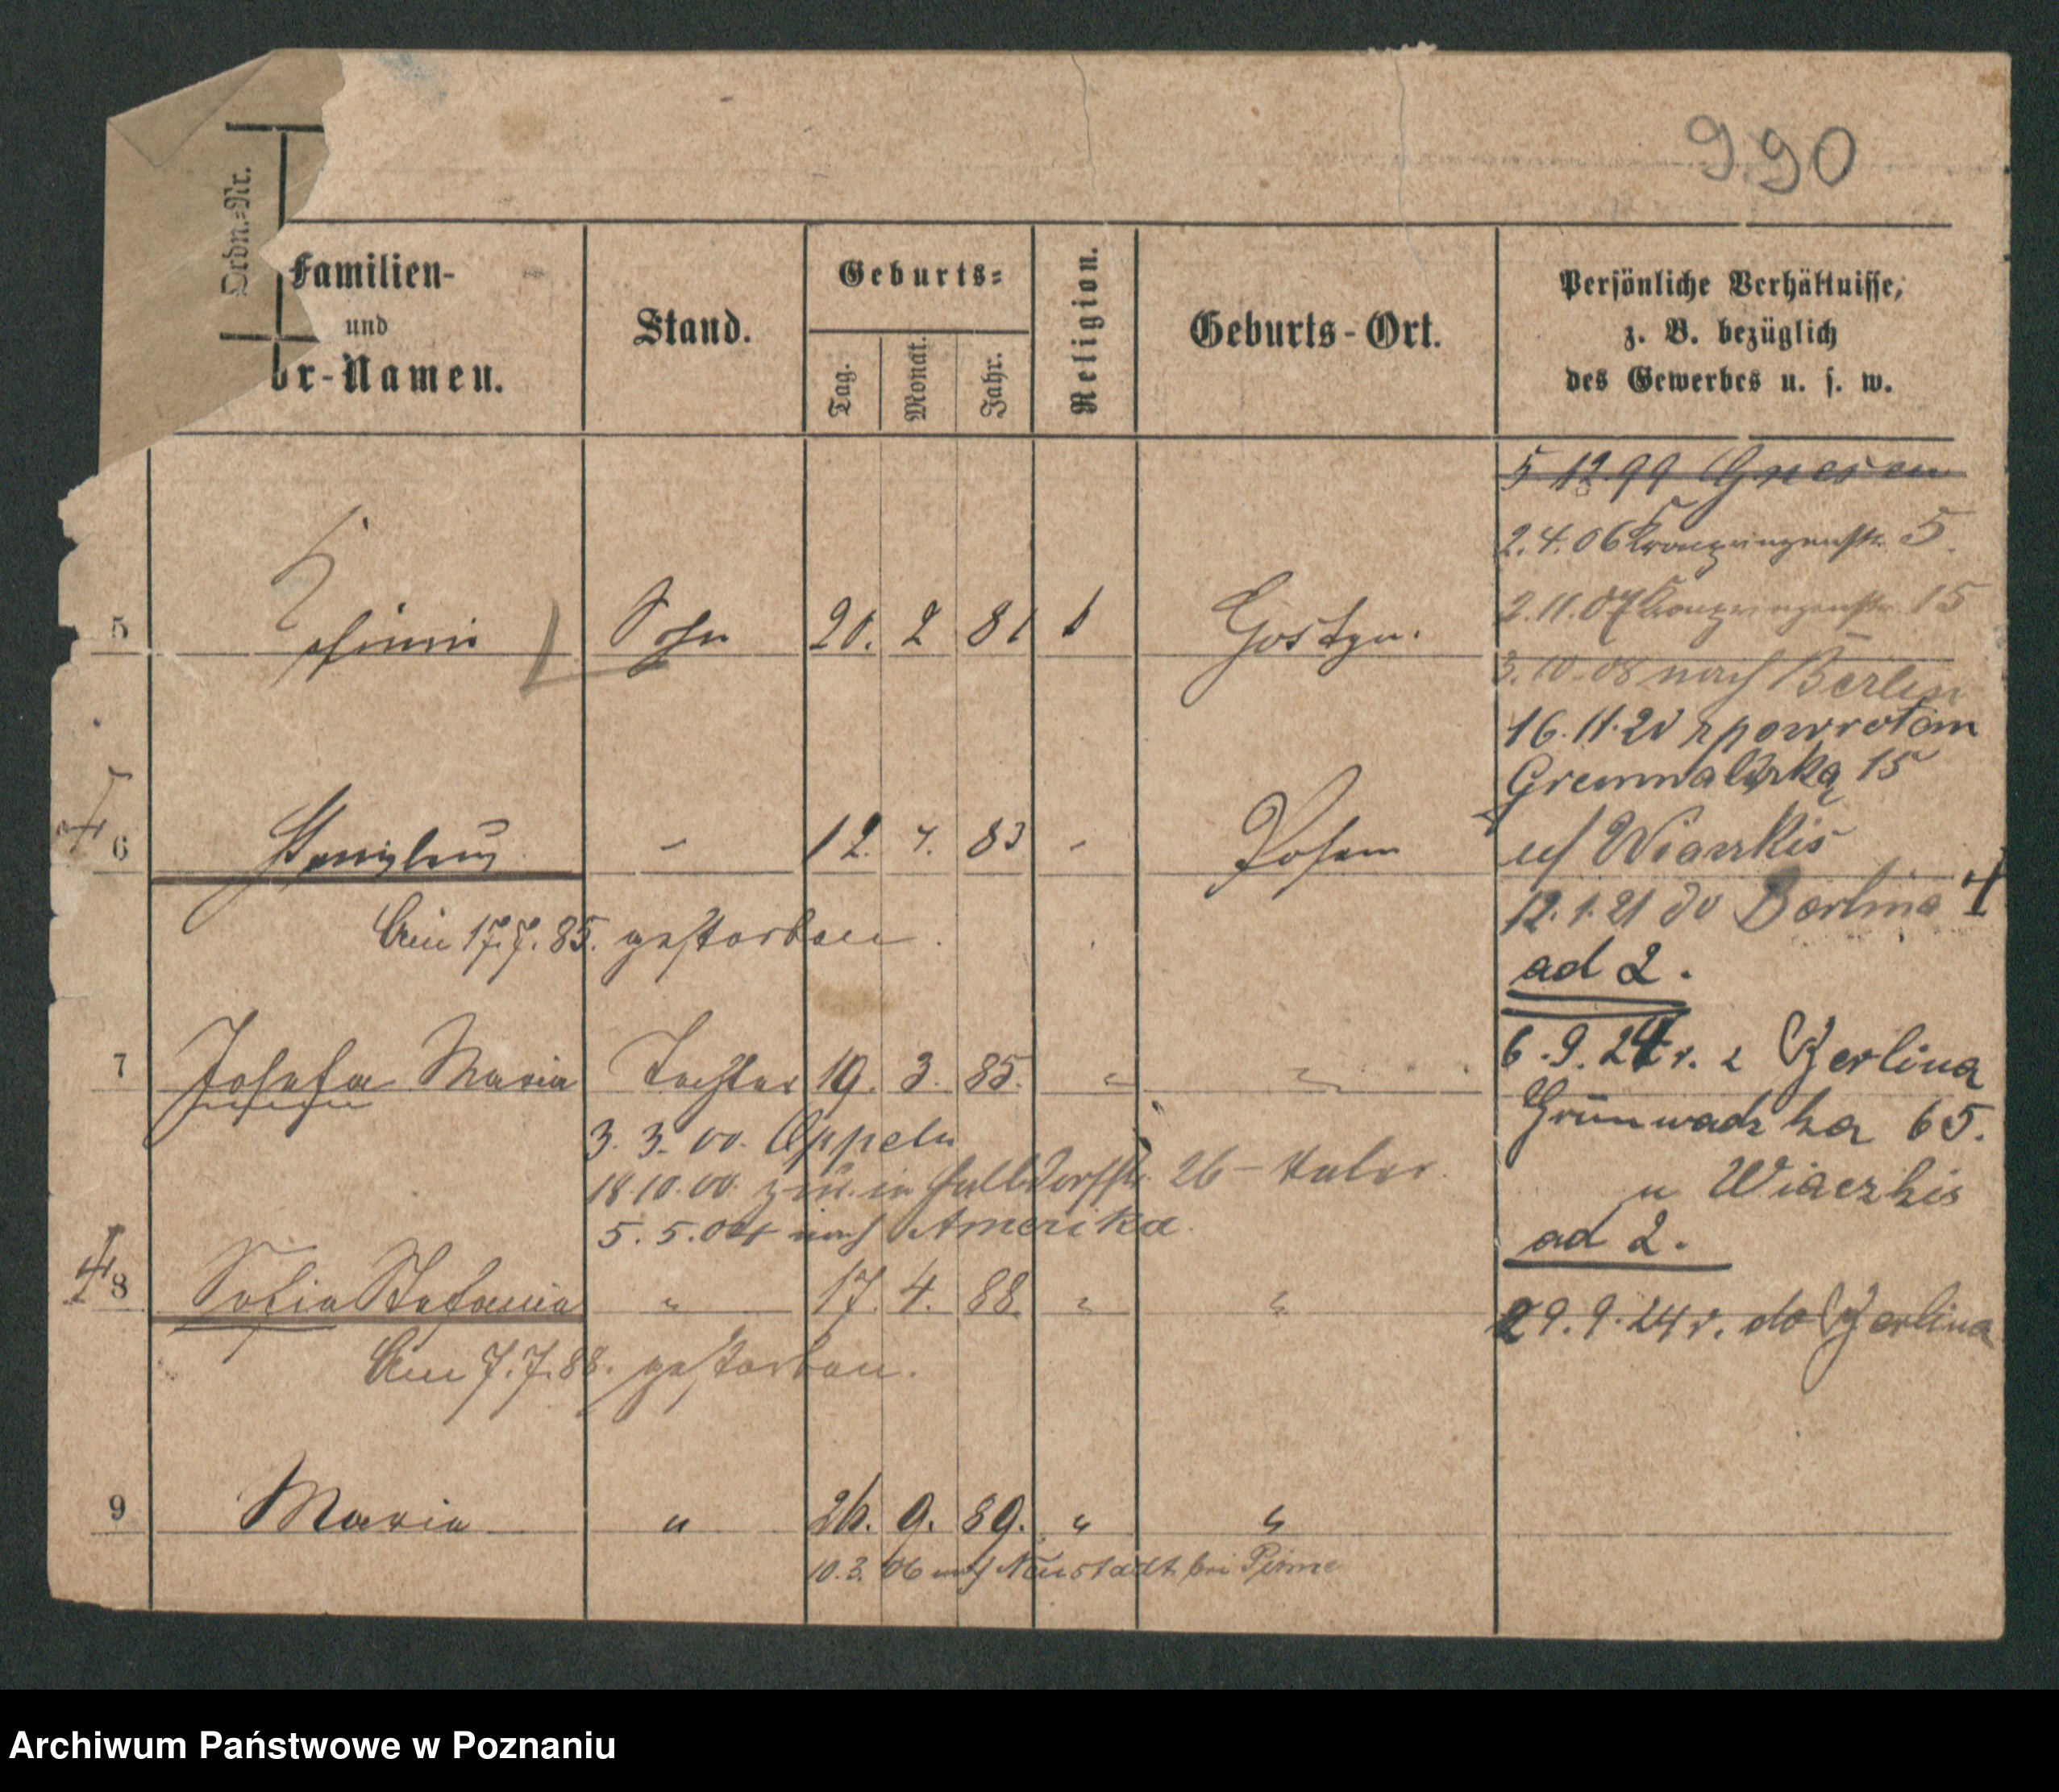 990
Ordn.=Nr.
Familien-
und
or-Namen.
Stand.
Geburts=
Tag.
Monat.
Jahr.
Religion.
Geburts-Ort.
Persönliche Verhältnisse,
z. B. bezüglich
des Gewerbes u. s. w.
5 12.99 Gnesen
2.4.06 Kronprinzenstr. 5.
2.11.07 Kronprinzenstr. 15
5 Sohn 20. 2 81 Gostyn.
3.10.08 nach Berlin
16.11.20 z powrotem
15
6 Stanislaus 12. 4. 83 Posen
u/ Wiazkis
Am 17.7.85. gestorben.
12.1.21 do Berlina
ad 2.
7 Josefa Maria Tochter 19. 3. 85. "
6.9.24 r. z Berlina
3. 3. 00. Oppeln
65.
18.10.00. 26
u Wiaczkis
5. 5. 04 nach Amerika.
ad 2.
8 Sofia Stefania " 17. 4. 88 " "
29.9.24 r. do Berlina
Am 7.7.88. gestorben.
9 Maria " 26. 9. 89. " "
10.3.06 nach Neustadt bei Pinne
Archiwum Państwowe w Poznaniu